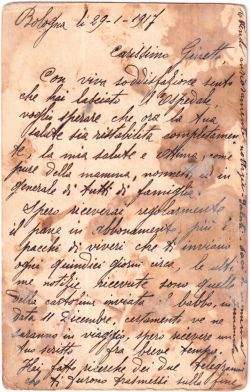 Bologna li 29-1-1917
Carissimo Ginetto
Con viva soddisfazione sento
che hai lasciato l'Ospedale,
voglio sperare che ora la tua
salute sia ristabilita completamen-
te, la mia salute è ottima come
pure della mamma, nonno ed in
generale di tutti di famiglia.
Spero riceverai regolarmente
il pane in abbonamento, più i
pacchi di viveri che ti inviano
ogni quindici giorni circa, le ulti-
me notizie ricevute sono quelle
della cartolina inviata il babbo, in
data 11 Dicembre, certamente ve ne
saranno in viaggio, spero ricevere un
tuo scritto fra breve tempo.
Hai fatto ricerche dei due
che ti furono trasmessi